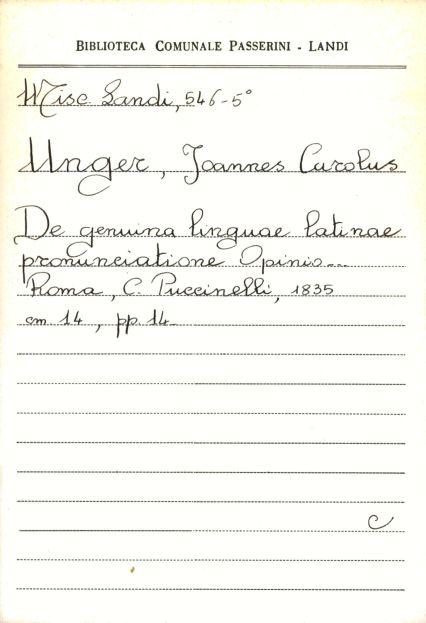 BIBLIOTECA COMUNALE PASSERINI - LANDI
Misc. Landi, 546-5°
Unger, Joannes Carolus
De genuina linguae latinae
pronunciatione Opinio...
Roma, C. Puccinelli, 1835
cm 14, pp. 14.
C